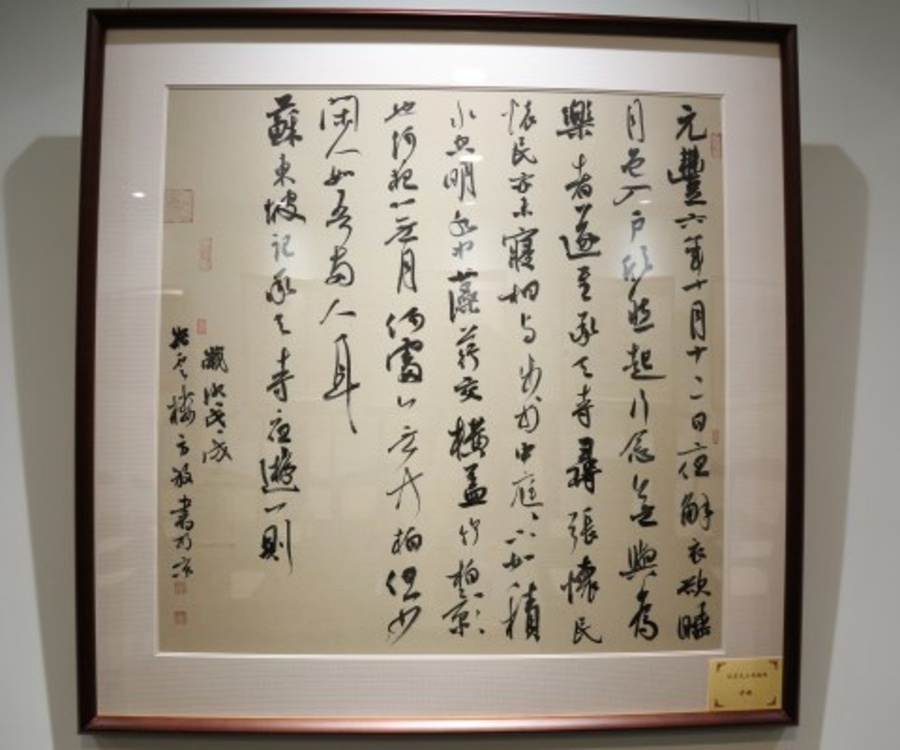 元豐六年十月十二日夜解衣欲睡
月色入戶欣然起行念無與為
樂者遂至承天寺尋張懷民
懷民亦未寢相与步於中庭庭下如積
水空明水中藻荇交橫蓋竹柏影
也何夜無月何處無竹柏但少
閑人如吾兩人耳
蘇東坡記承天寺夜遊一則
歲次戊戌
雲樓